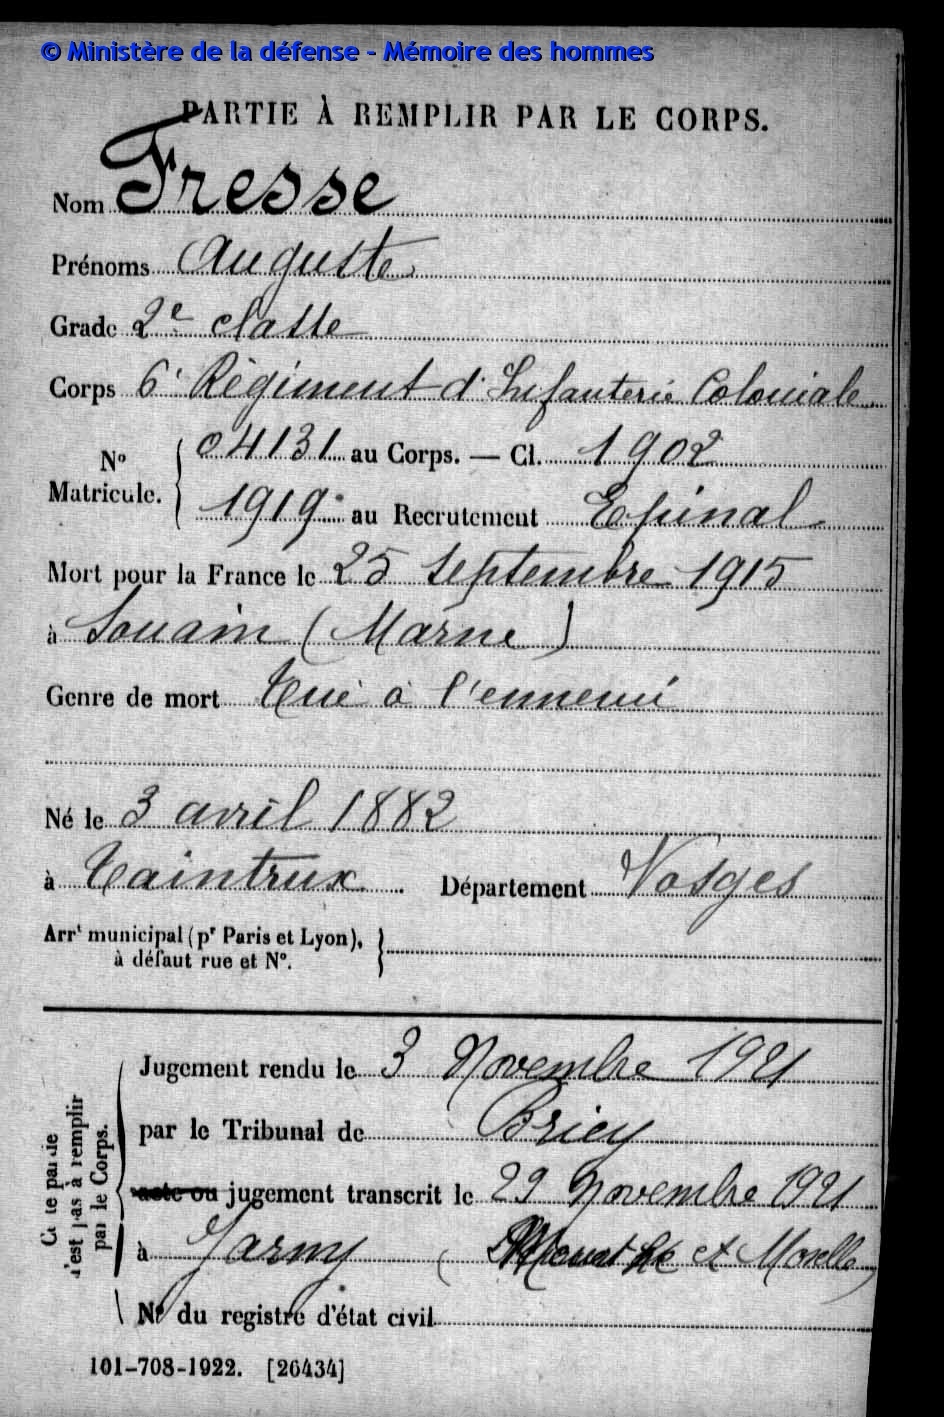 © Ministère de la défense - Mémoire des hommes
PARTIE À REMPLIR PAR LE CORPS.
Nom Fresse
Prénoms Auguste
Grade 2e classe
Corps 6e Régiment d'Infanterie Coloniale
No Matricule. { 04131 au Corps. — Cl. 1902
1919 au Recrutement Epinal
Mort pour la France le 25 septembre 1915
à Souain (Marne)
Genre de mort Tué à l'ennemi
Né le 3 avril 1882
à Taintrux Département Vosges
Arrt municipal (pr Paris et Lyon), }
à défaut rue et No.
Cette partie n'est pas à remplir par le Corps.
Jugement rendu le 3 Novembre 1921
par le Tribunal de Briey
acte ou jugement transcrit le 29 Novembre 1921
à Jarny ( et Moselle)
No du registre d'état civil
101-708-1922. [26434]